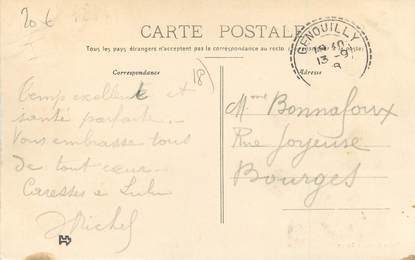 20 €
CARTE POSTALE
Tous les pays étrangers n'acceptent pas la correspondance au recto
Correspondance
Adresse
18)
GENOUILLY
13 - 9
Temps excellent et
santé parfaite..
Vous embrasse tous
de tout cœur..
Caresses à Lulu
Michel
Mme Bonnafoux
Rue Joyeuse
Bourges